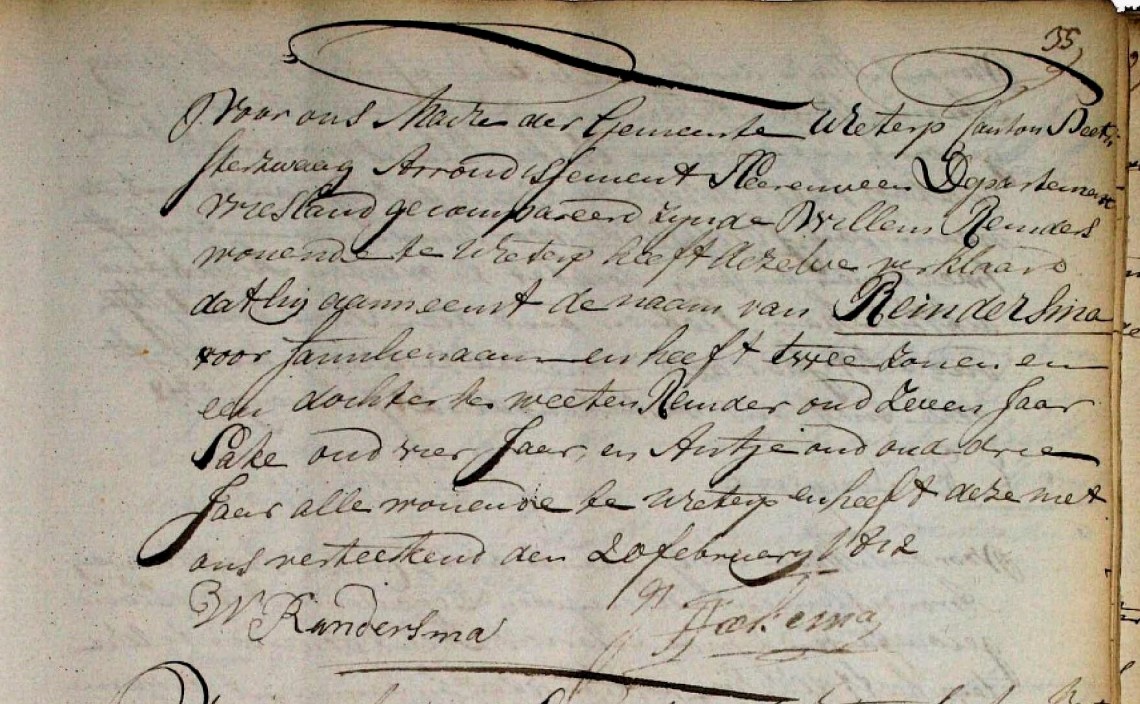 35
Voor ons Maire der Gemeente Ureterp Canton Beet
sterzwaag Arrondissement Heerenveen Departement
Vriesland gecompareerd zynde Willem Reinders
wonende te Ureterp heeft dezelve verklaard
dat hij aanneemt de naam van Reindersma
voor familienaam en heeft twee zonen en
een dochter te weeten Reinder oud zeven Jaar
Sake oud vier Jaar, en Antje oud oud drie
Jaar alle wonende te Ureterp en heeft deze met
ons verteekend den 20 february 1812
W Rindersma